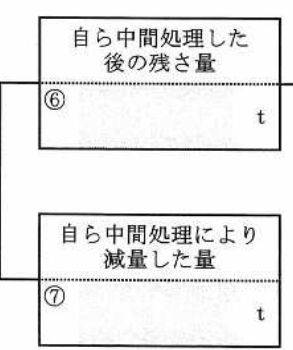 自ら中間処理した
後の残さ量
⑥
t
自ら中間処理により
減量した量
⑦
t